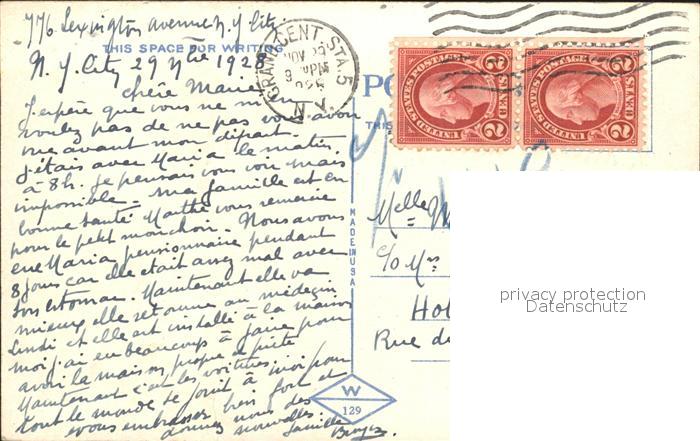 776 Lexington avenue N. Y City.
THIS SPACE FOR WRITING
N. Y. City 29 9bre 1928
Chère Marie
J'espère que vous ne m'en
voulez pas de ne pas vous avoir
vue avant mon départ.
J'étais avec Maria le matin
à 8h. Je pensais vous voir mais
impossible - ma famille est en
bonne santé Marthe vous remercie
pour le petit mouchoir. Nous avons
eue Maria pensionnaire pendant
8 jours car elle était assez mal avec
son estomac. Maintenant elle va
mieux elle retourne au médecin
Lundi et elle est installé à la maison
moi j'ai eu beaucoup à faire pour
avoir la maison propre et prête
Maintenant c'est les voitures.
tout le monde se joint à moi pour
vous embrasser bien fort et
donnez nous des
nouvelles
famille
GRAND CENT. STA. 5
N.Y.
NOV 29
PM
UNITED STATES POSTAGE
2 CENTS 2
UNITED STATES POSTAGE
2 CENTS 2
PO
THIS
Melle M
c/o Mrs
Hot
Rue de
MADE IN U.S.A.
W
129
privacy protection
Datenschutz